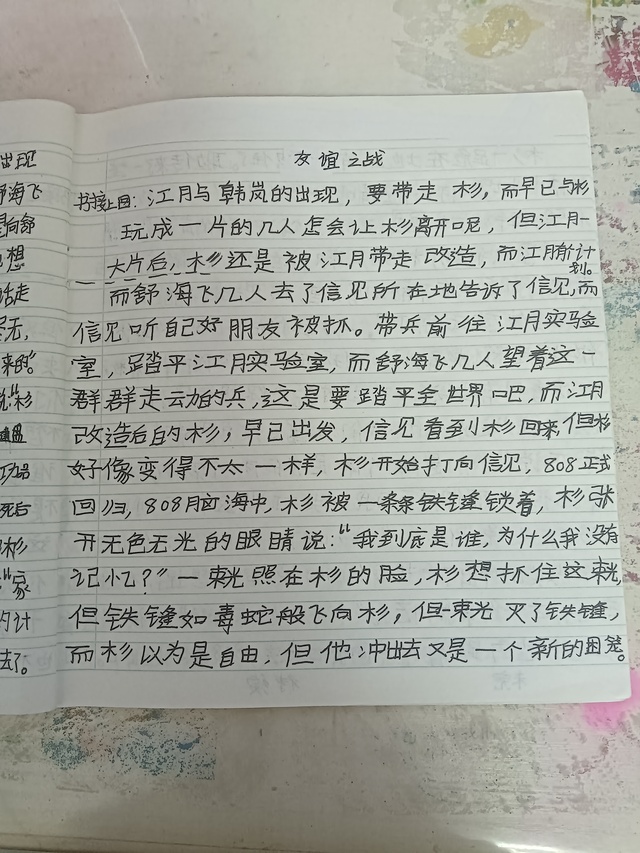 出现
海飞
向舒
想
话走
无,
来的。
说"杉
死后
杉
"家
的计
去了。
友谊之战
书接上回：江月与韩岚的出现，要带走杉，而早已与杉
玩成一片的几人怎会让杉离开呢，但江月一
一大片后，杉还是被江月带走改造，而江月新计划。
而舒海飞几人去了信见所在地告诉了信见，而
信见听自己好朋友被抓。带兵前往江月实验
室，踏平江月实验室，而舒海飞几人望着这一
群群走动的兵，这是要踏平全世界吧，而江月
改造后的杉，早已出发，信见看到杉回来，但杉
好像变得不太一样，杉开始打向信见，808正式
回归，808脑海中，杉被一条条铁锁着，杉张
开无色无光的眼睛说："我到底是谁，为什么我没有
记忆？"一束光照在杉的脸，杉想抓住这束光，
但铁如毒蛇般飞向杉，但一束光灭了铁，
而杉以为是自由，但他冲出去又是一个新的困笼。